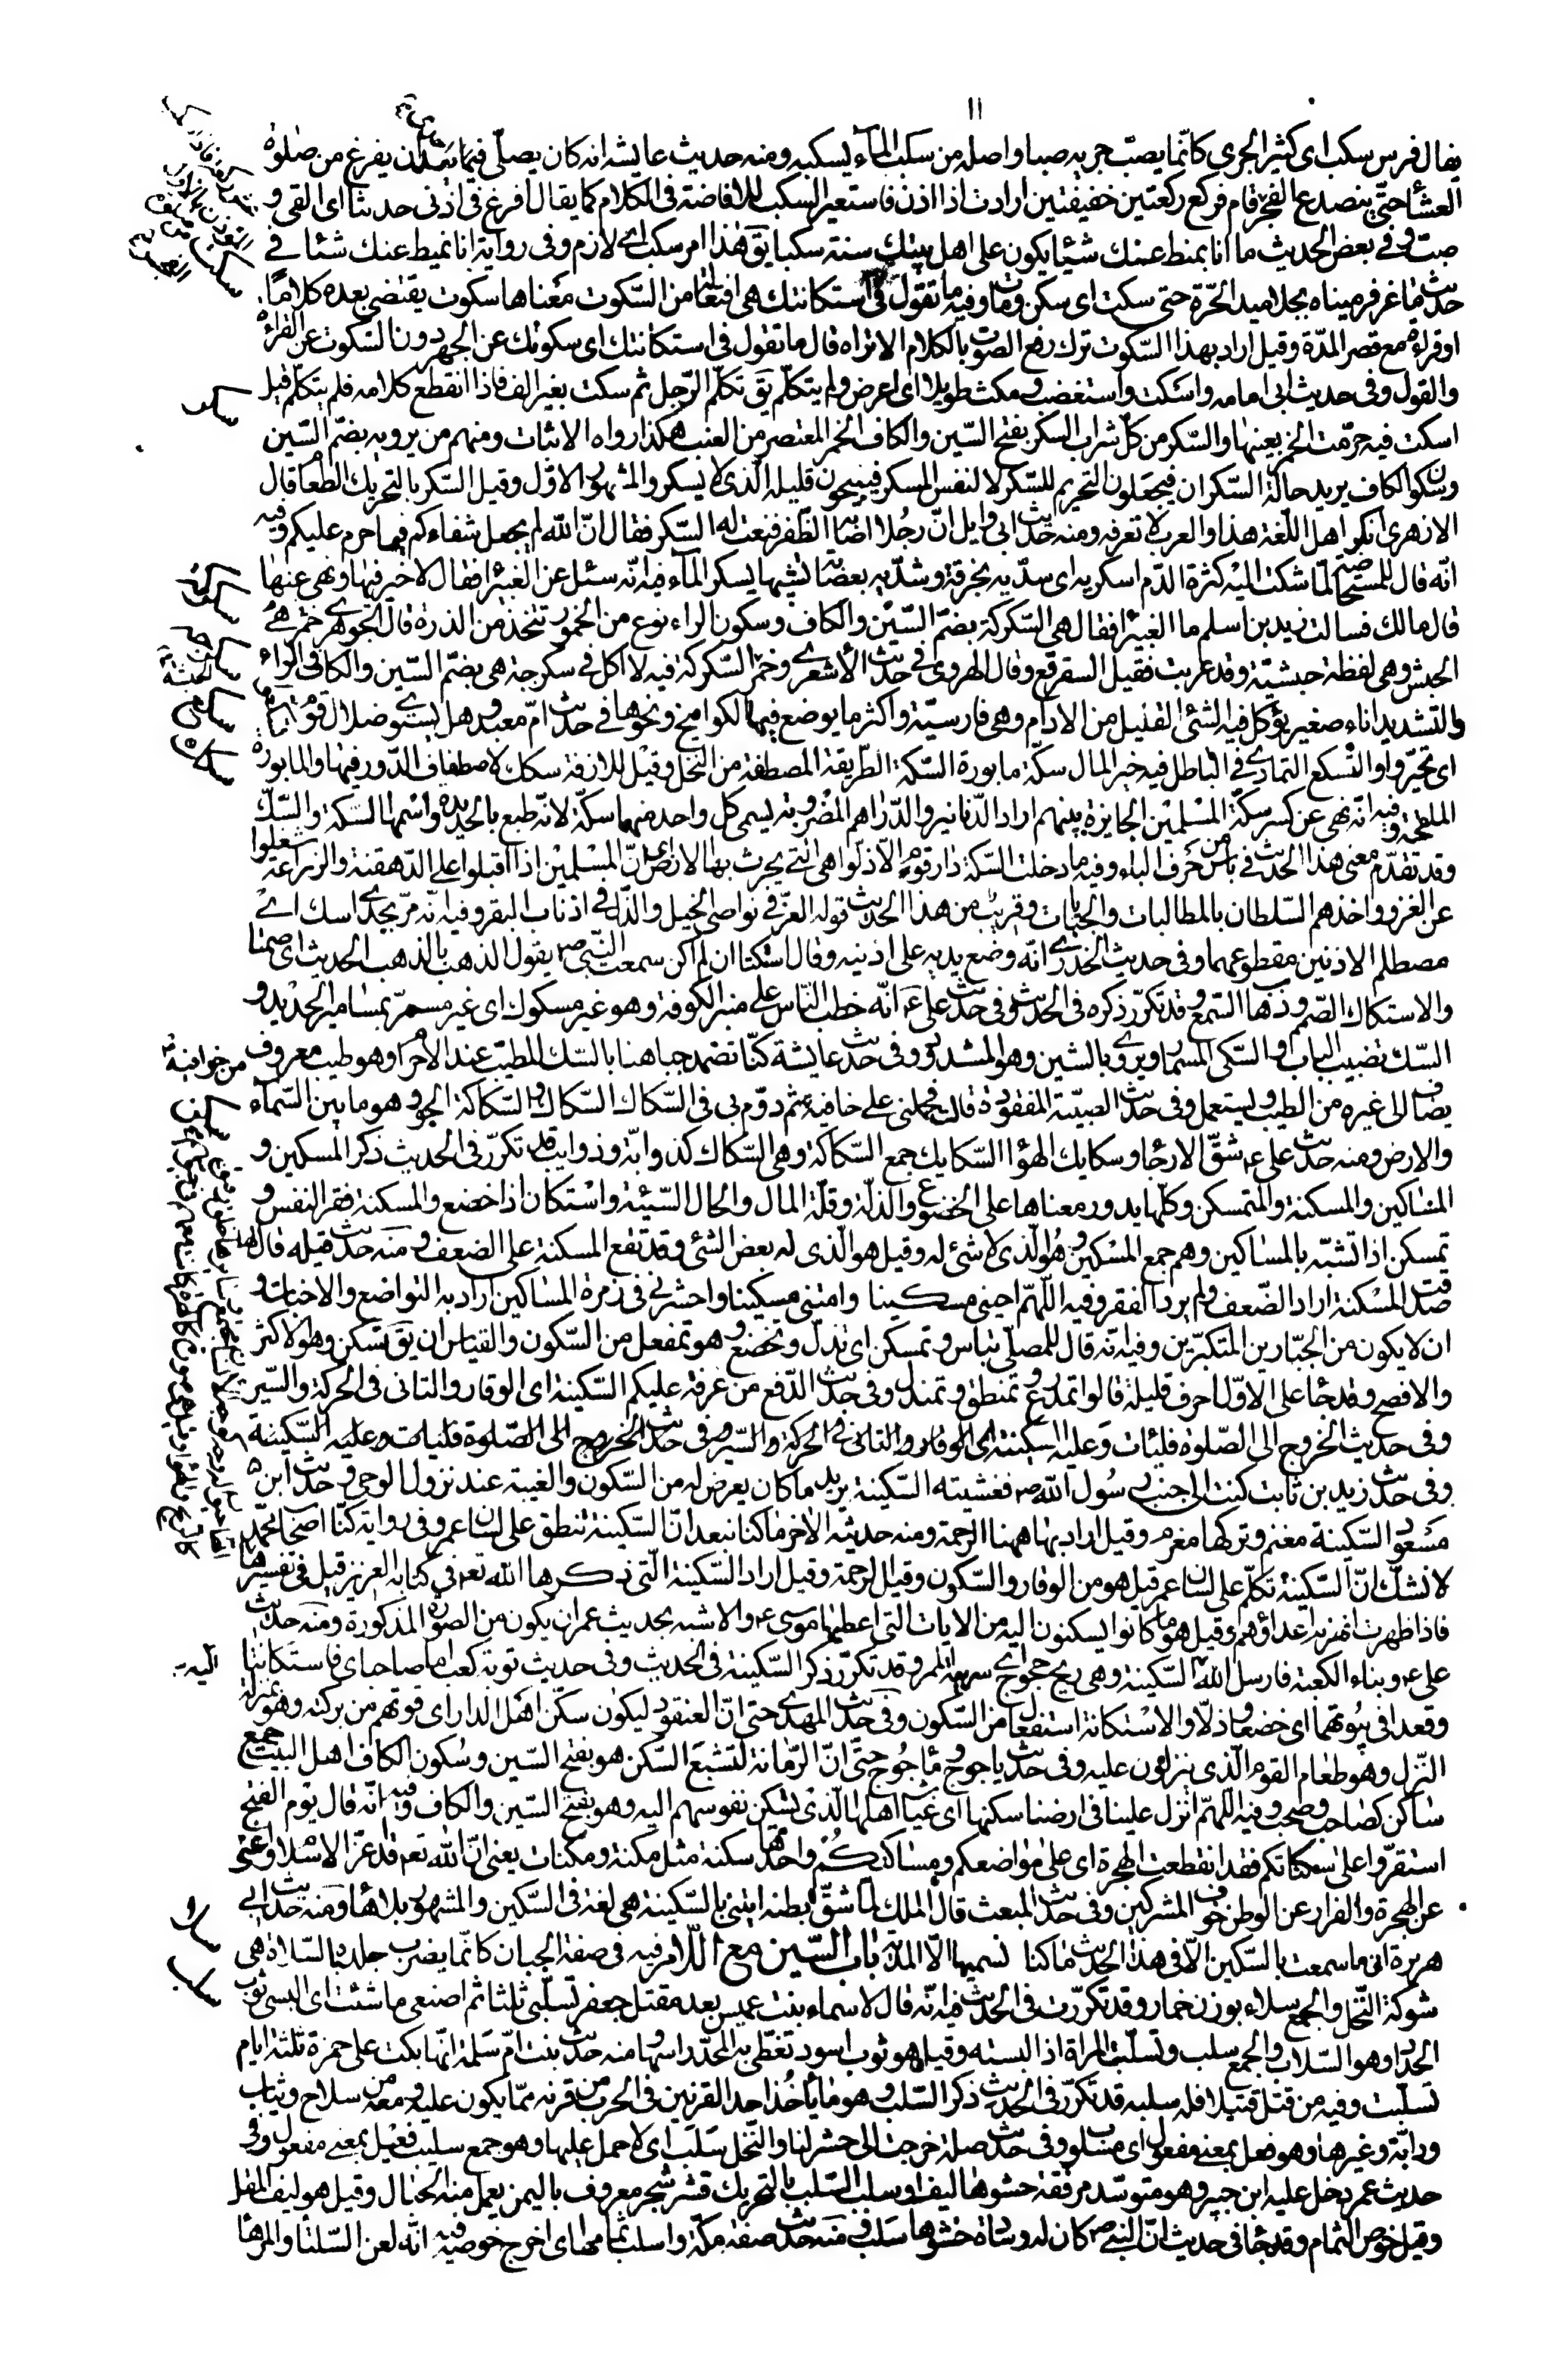 ١١
يقال فرس سكب اى كثير الجرى كانّما يصبّ جريه صبا واصله من سكب المآء يسكبه ومنه حديث عايشه انه كان يصلّى فيما بين ان يفرغ من صلوة
العشاء حتّى ينصدع الفجر قام فركع ركعتين خفيفتين ارادت اذا اذن فاستعير السكب للافاضة فى الكلام كما يقال افرغ فى اذنى حديثا اى القى و
صبّ وفى بعض الحديث ما انا بمنط عنك شيئا يكون على اهل بيتك سنة سكبا يق هذا امر سكب اى لازم وفى رواية انا نميط عنك شئا فى
حديث ماعز فرميناه بجلاميد الحرّة حتى سكت اى سكن ومات وفيه ما تقول فى استكاتتك هى افتعالة من السّكوت معناها سكوت يقتضى بعده كلاما
او قراءة مع قصر المدّة وقيل اراد بهذا السّكوت ترك رفع الصوت بالكلام الا تراه قال ما تقول فى استكاتتك اى سكوتك عن الجهر دون السّكوت عن القراءة
والقول وفى حديث ابى امامه واسكت واستغضب ومكث طويلا اى اعرض ولم يتكلّم يق تكلّم الرّجل ثم سكت بغير الف فاذا انقطع كلامه فلم يتكلّم قيل
اسكت فيه حرّمت الخمر بعينها والسّكر من كلّ شراب السكر بفتح السّين والكاف الخمر المعتصر من العنب هكذا رواه الاثبات ومنهم من يرويه بضمّ السّين
وسكون الكاف يريد حالة السّكران فيجعلون التحريم للسّكر لا لنفس المسكر فيبيحون قليله الّذى لا يسكر والمشهور الاوّل وقيل السّكر بالتحريك الطعام قال
الازهرى انكر اهل اللّغة هذا والعرب لا تعرفه ومنه حديث ابى وايل انّ رجُلا اصابه الظّفر فنعت له السّكر فقال انّ اللّه لم يجعل شفاءكم فيما حرم عليكم وفيه
انّه قال للمستحاضة لمّا شكت اليه كثرة الدّم اسكريه اى سدّيه بخرقة وشدّيه بعصابة تشبيها بسكر المآء فيه انّه سئل عن الغبيراء فقال لا خير فيها ونهى عنها
قال مالك فسالت زيد بن اسلم ما الغبيراء فقال هى السّكركة بضمّ السّين والكاف وسكون الراء نوع من الخمور تتّخذ من الذرة قال الجوهرى خمر
الحبش وهى لفظة حبشيّة وقد عربت فقيل السقرقع وقال الهروى فى حديث الاشعرى وخمر السّكركة فيه لا اكل فى سكرجة هى بضمّ السّين والكاف والراء
والتشديد اناء صغير يؤكل فيه الشئ القليل من الادام وهى فارسيّة واكثر ما يوضع فيها الكواميخ ونحوها فى حديث امّ معبد وهل يستوى ضلال قوم تسكّعوا
اى تحيّروا والتّسكع التمادى فى الباطل فيه خير المال سكّة مابورة السّكة الطّريقة المصطفة من النخل وقيل للازقة سكك لاصطفاف الدّور فيها والمابورة
الملقحة وفيه انّه نهى عن كسر سكّة المسلمين الجايزة بينهم اراد الدّنانير والدّراهم المضروبة يسمى كل واحد منهما سكّة لانّه طبع بالحديدة واسمها السّكة والسّكّ
وقد تقدّم معنى هذا الحديث فى باس من حرف الباء وفيه ما دخلت السّكة دار قوم الّا ذلّوا هى التى يحرث بها الارض اى انّ المسلمين اذا اقبلوا على الدّهقنة والزراعة شغلوا
عن الغزو واخذهم السّلطان بالمطالبات والجبايات وقريب من هذا الحديث قوله العزّ فى نواصى الخيل والذّل فى اذناب البقر وفيه انّه مرّ بجدى اسك اى
مصطلم الاذنين مقطوعهما وفى حديث الخدرى انّه وضع يديه على اذنيه وقال استكتا ان لم اكن سمعت النّبى ص يقول الذهب بالذهب الحديث اى صمتا
والاستكاك الصّمم وذهاب السّمع وقد تكرّر ذكره فى الحديث وفى حديث على ع انّه خطب النّاس على منبر الكوفة وهو غير مسكوك اى غير مسمرّ بمسامير الحديد و
السّك تضبيب الباب والسّكى المسمار ويروى بالشين وهو المشدود وفى حديث عايشة كنّا نضمد جباهنا بالسّك المطيّب عند الاحرام وهو طيب معروف
يضاف الى غيره من الطيب ويستعمل وفى حديث الصبيّة المفقودة قالت فحملنى على خافية ثم دوّم بى فى السّكاك السّكاك والسّكاكة الجو وهو ما بين السّمآء
والارض ومنه حديث على ع شقّ الارجاء وسكايك الهوآء السّكايك جمع السّكاكة وهى السّكاك كذوابة وذوايب قد تكرّر فى الحديث ذكر المسكين و
المساكين والمسكنة والتمسكن وكلّها يدور معناها على الخضوع والذلّة وقلّة المال والحال السّيّئة واستكان اذا خضع والمسكنة فقر النفس و
تمسكن اذا تشبّه بالمساكين وهم جمع المسكين وهُو الّذى لا شئ له وقيل هو الّذى له بعض الشئ وقد تقع المسكنة على الضعف ومنه حديث قيله قال لها
صدقت المسكنة اراد الضّعف ولم يرد الفقر وفيه اللّهمّ احينى مسكينا وامتنى مسكينا واحشرنى فى زمرة المساكين اراد به التواضع والاخبات و
ان لا يكون من الجبّارين المتكبرّين وفيه انّه قال للمصلّى تباس وتمسكن اى تذلّل وتخضع وهو تمفعل من السّكون والقياس ان يق تسكّن وهو الاكثر
والافصح وقد جاء على الاوّل احرف قليلة قالوا تمدرع وتمنطق وتمندل وفى حديث الدّفع من عرفة عليكم السّكينة اى الوقار والتانى فى الحركة والسّير
وفى حديث الخروج الى الصّلوة فليأت وعليه السّكينة اى الوقار والتانى فى الحركة والسّير وفى حديث الخروج الى الصّلوة فليأت وعليه السّكينة
وفى حديث زيد بن ثابت كنت الى جنب رسُول اللّه ص فغشيته السّكينة يريد ما كان يعرض له من السّكون والغيبة عند نزول الوحى وحديث ابن
مسعود السّكينة مغنم وتركها مغرم وقيل اراد بها ههنا الرّحمة ومنه حديثه الاخر ما كنا نبعد انّ السّكينة تنطق على لسان عمر وفى رواية كنّا اصحاب محمّد
لا نشكّ انّ السّكينة تكلّم على لسان عمر قيل هو من الوقار والسّكون وقيل الرحمة وقيل اراد السّكينة الّتى ذكرها اللّه تع فى كتابه العزيز قيل فى تفسيرها
فاذا ظهرت انهزم اعداؤهم وقيل هو ما كانوا يسكنون اليه من الايات التى اعطيها موسى ع والاشبه بحديث عمر ان يكون من الصورة المذكورة ومنه حديث
على ع وبناء الكعبة فارسل اللّه السّكينة وهى ريح خجوج اى سريعة الممر وقد تكرّر ذكر السّكينة فى الحديث وفى حديث توبة كعب اما صاحباى فاستكانا
وقعدا فى بيُوتهما اى خضعا وذلّا والاستكانة استفعال من السّكون وفى حديث المهدى حتى انّ العنقود ليكون سكن اهل الدار اى قوتهم من بركته وهو بمنزلة
النّزل وهو طعام القوم الّذى ينزلون عليه وفى حديث ياجوج وماجُوج حتىّ انّ الرّمانة لتشبع السّكن هو بفتح السّين وسُكون الكاف اهل البيت جمع
ساكن كصاحب وصحب وفيه اللّهمّ انزل علينا فى ارضنا سكنها اى غياث اهلها الّذى تسكن نفوسهم اليه وهو بفتح السّين والكاف وفيه انّه قال يوم الفتح
استقرّوا على سكناتكم فقد انقطعت الهجرة اى على مواضعكم ومساكنكُم واحدها سكنة مثل مكنة ومكنات يعنى انّ اللّه تع قد اعزّ الاسلام واغنى
عن الهجرة والفرار عن الوطن خوف المشركين وفى حديث المبعث قال الملك لمّا شقّ بطنه ايتنى بالسّكينة هى لغة فى السّكين والمشهور بلا هاء ومنه حديث ابى
هريرة انى ما سمعت بالسّكين الّا فى هذا الحديث ما كنا نسميها الّا المدية باب السّين مع اللّام فيه فى صفة الجبان كانّما يضرب جلده بالسّلاءة هى
شوكة النّخل والجمع سلاء بوزن خمار وقد تكرّرت فى الحديث فيه انّه قال لاسماء بنت عميس بعد مقتل جعفر تسلّبى ثلثا ثم اصنعى ما شئت اى البسى ثوب
الحداد وهو السّلاب والجمع سلب وتسلّبت المراة اذا لبسته وقيل هو ثوب اسود تغطّى به المحدّ راسها ومنه حديث بنت امّ سلمة انّها بكت على حمزة ثلثة ايام
تسلّبت وفيه من قتل قتيلا فله سلبه قد تكرّر فى الحديث ذكر السّلب وهو ما ياخُذ احد القرنين فى الحرب من قرنه ممّا يكون عليه ومعه من سلاح وثياب
ودابّة وغيرها وهو فعل بمعنى مفعول اى مسلوب وفى حديث صلة خرجت الى حشر لنا والنّخل سلب اى لا حمل عليها وهو جمع سليب فعيل بمعنى مفعول وفى
حديث عمر دخل عليه ابن جبير وهو متوسّد مرفقة حشوها ليف او سلب السّلب بالتحريك قشر شجر معروف باليمن يعمل منه الحبال وقيل هو ليف المقل
وقيل خوص الثمام وقد جاء فى حديث انّ النّبى ص كان له وسادة حشوها سلب ومنه حديث صفة مكّة واسلب ثمامها اى اخرج خوصه فيه انّه لعن السّلتاء والمرهاء